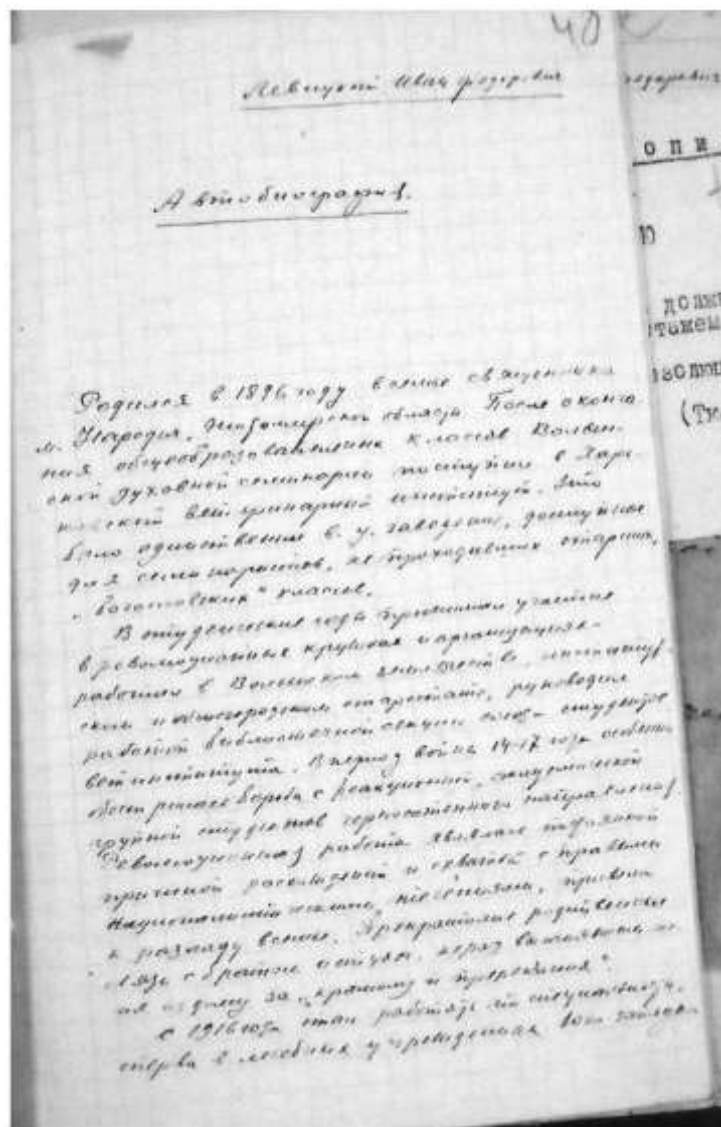 40
Левицкий Иван Федорович
Автобиография.
Родился в 1896 году в семье священника
м. Народичи, Житомирской области. После оконча-
ния общеобразовательных классов Волын-
ской духовной семинарии поступил в Харь-
ковский ветеринарный институт. Это
было единственное в. у. заведение, доступное
для семинаристов, не проходивших старших,
"богословских" классов.
В студенческие годы принимал участие
в революционных кружках и организациях -
работал в Волынском землячестве, институт-
ском и общегородском старостате, руководил
работой библиотечной секции союза студентов
ветинститута. В период войны 14-17 года особенно
борьба с реакционной, академической
группой студентов
Революционная работа являлась
причиной расхождений и с правыми
националистическими привела
к разладу в семье. родственные
связь с братом и отцом,
из дому за "крамолу и пререкания".
С 1916 года стал работать по специальности,
сперва в лечебных учреждениях
одарович
о п и
Ю
долж
(Ти